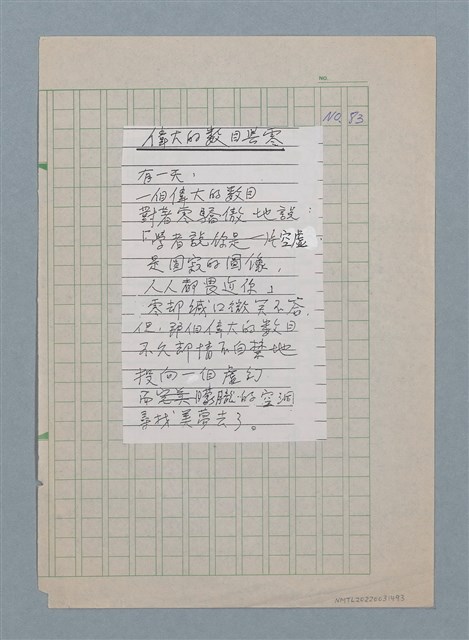 NO.
NO. 83
偉大的數目與零
有一天,
一個偉大的數目
對著零驕傲地說:
「學者說你是一片空虛,
是圓寂的圖像,
人人都畏近你」
零却緘口微笑不答.
但,那個偉大的數目
不久却情不自禁地
投向一個虛幻
而完美朦朧的空洞
尋找美夢去了。
NMTL20220031493